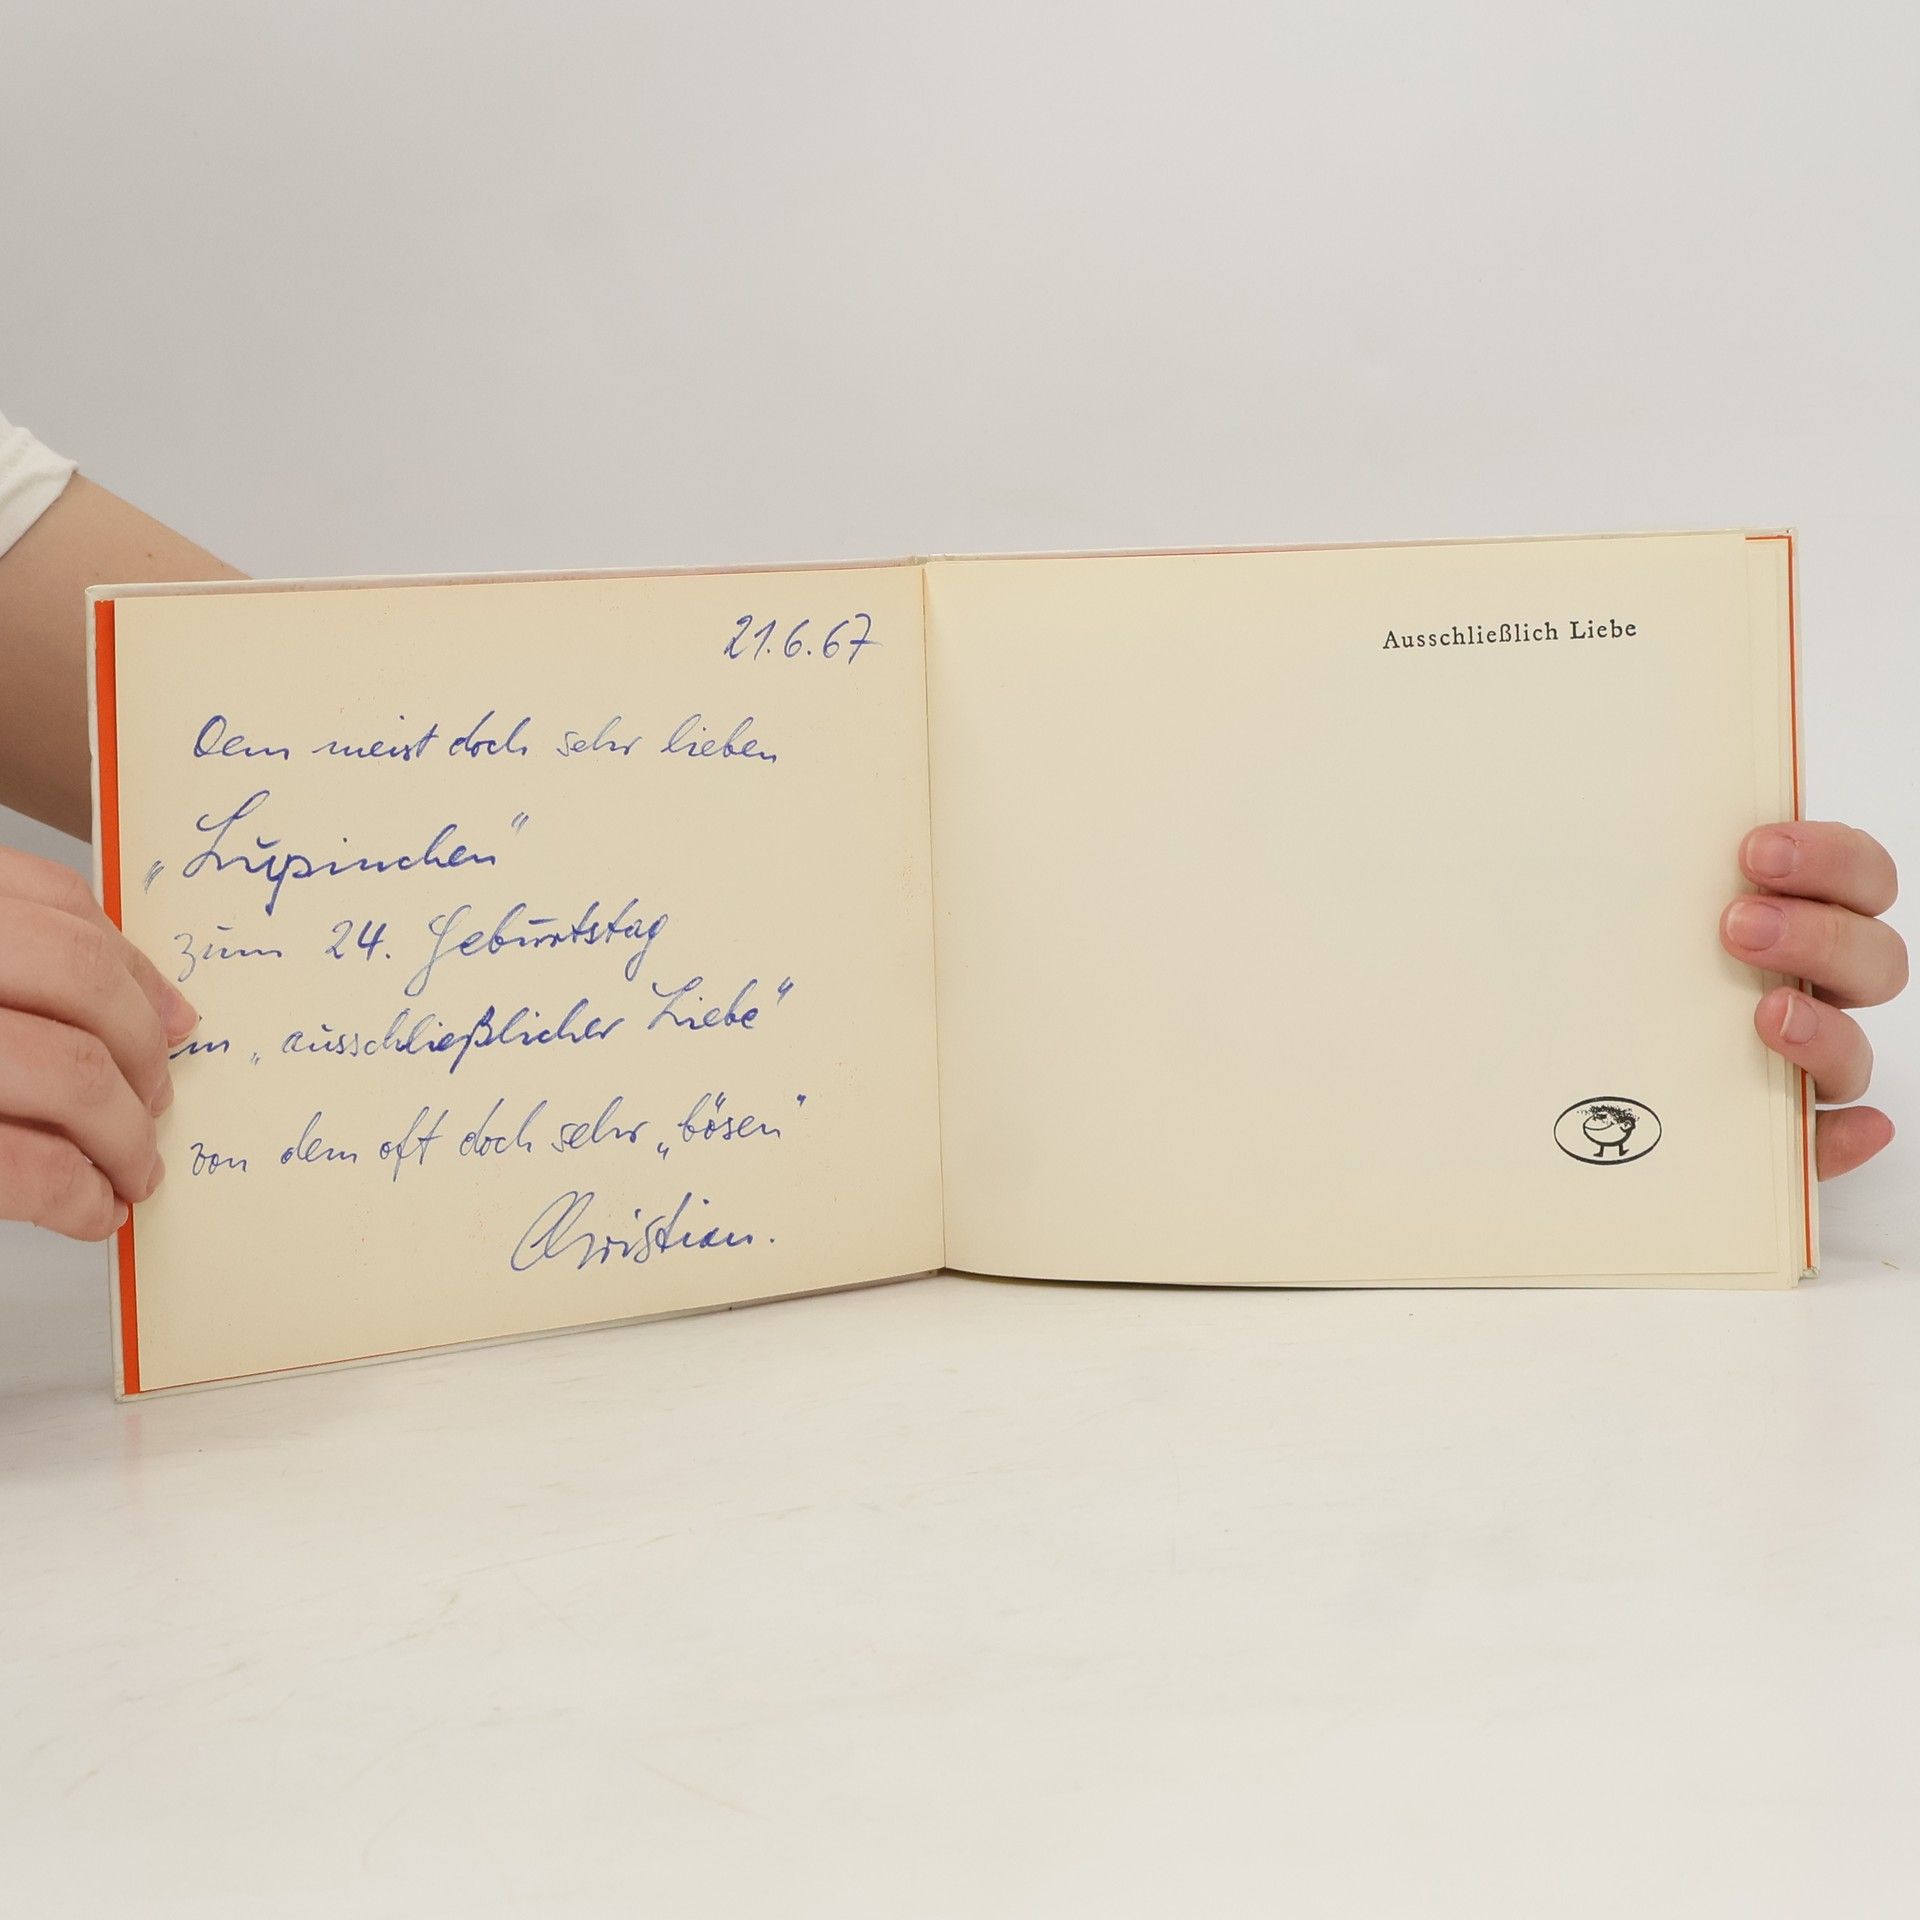 21.6.67
Dem meist doch sehr lieben
„Lupinchen“
zum 24. Geburtstag
in „ausschließlicher Liebe“
von dem oft doch sehr „bösen“
Christian.
Ausschließlich Liebe